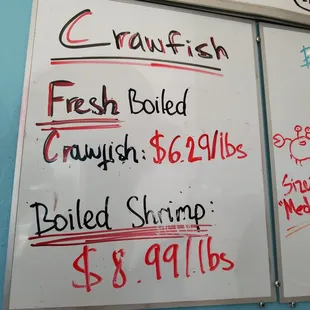 Crawfish
Fresh Boiled
Crawfish: $6.29/lbs
Boiled Shrimp:
$8.99/lbs
Size
"Med